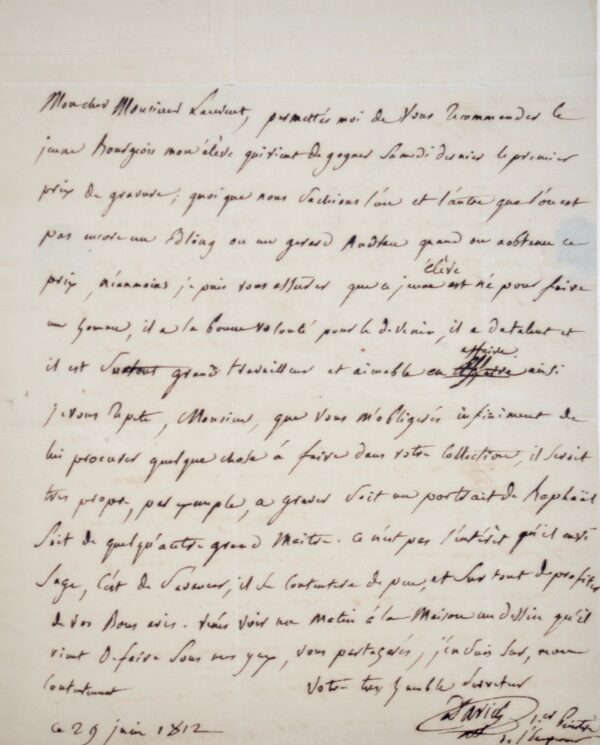 Mon cher Monsieur Laurent, permettés moi de vous recommander le
jeune Bourgeois mon élève qui vient de gagner Samedi dernier le premier
prix de gravure; quoi que nous sachions l'un et l'autre que l'on est
pas encore un Edling ou un gerard Audran quand on a obtenu ce
prix, néanmoins je puis vous assurer que ce jeune élève est né pour faire
un homme, il a la bonne volonté pour le devenir, il a du talent et
il est surtout grand travailleur et aimable en affaire ainsi
je vous répéte, Monsieur, que vous m'obligerés infiniment de
lui procurer quelque chose à faire dans votre collection, il seroit
très propre, par exemple, a graver soit un portrait de Raphaël
soit de quelqu'autre grand Maitre. Ce n'est pas l'intérêt qu'il envi
sage, c'est de s'avancer, il se contentera de peu, et sur tout de profiter
de vos bons avis. venés voir un matin à la maison un dessin qu'il
vient de faire sous mes yeux, vous partagerés, j'en suis sur, mon
contentement
votre très humble serviteur
David 1.er Peintre
de l'Empereur
ce 29 juin 1812